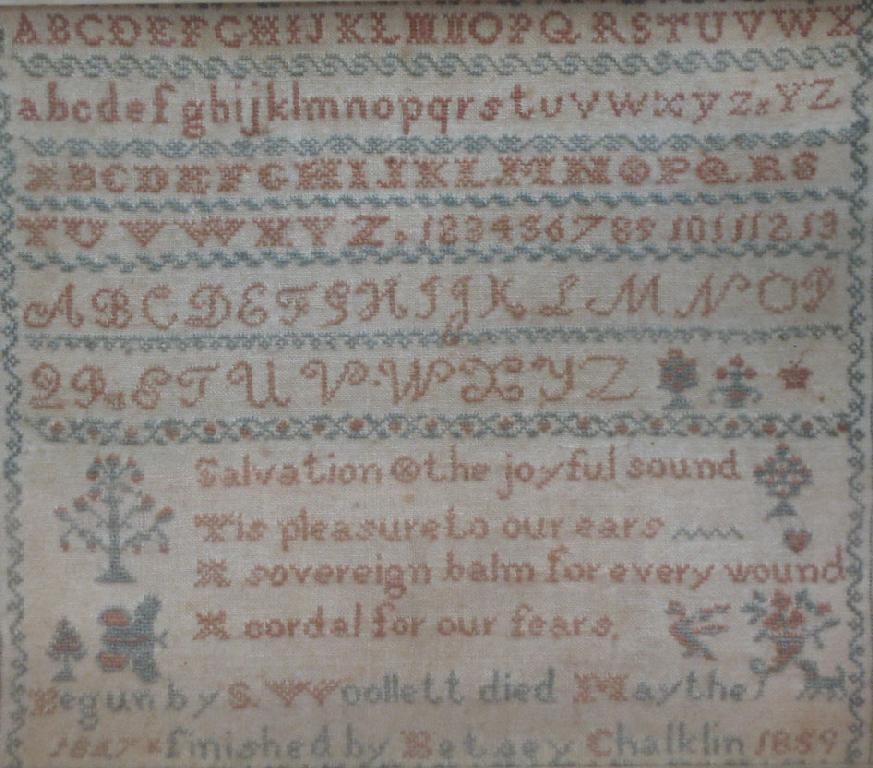 ABCDEFGHIJKLMNOPQRSTUVWX
abcdefghijklmnopqrstuvwxyz YZ
ABCDEFGHIJKLMNOPQRS
TUVWXYZ. 123456789 10 11 12 13
ABCDEFGHIJKLMNOP
QRSTUVWXYZ
Salvation O the joyful sound
Tis pleasure to our ears
A sovereign balm for every wound
A cordal for our fears.
Begun by S. Woollett died May the
finished by Betsey Chalklin 1859